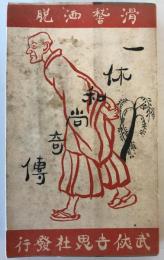 滑稽洒脱
一休和尚奇傳
武侠世界社發行